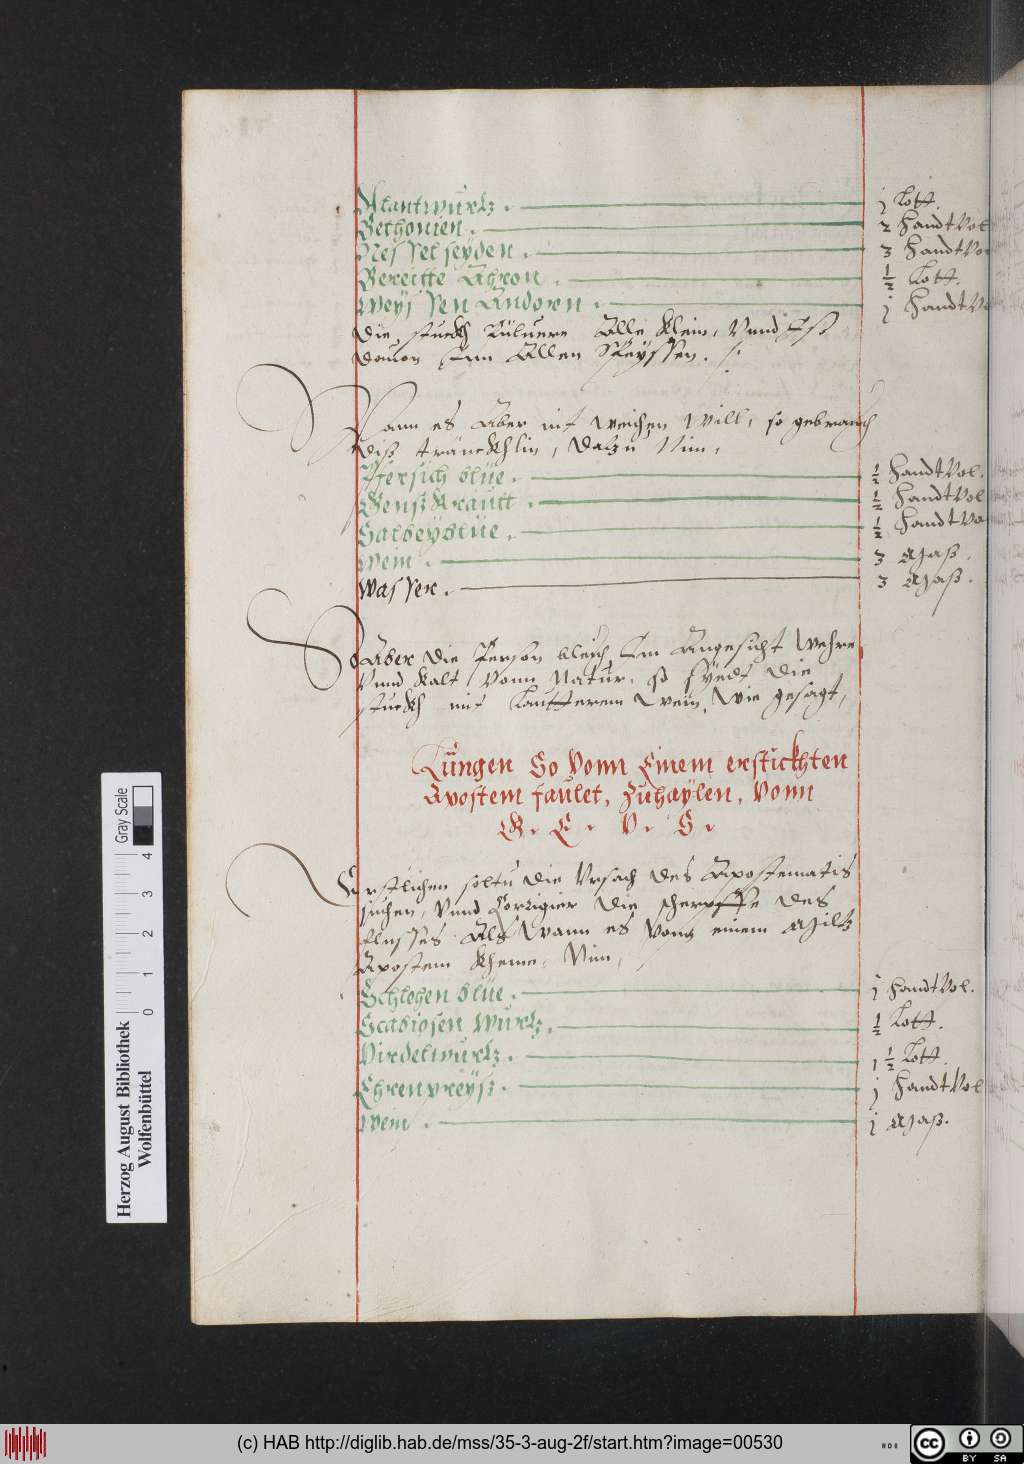 Alantwurtz. j Lott.
Bethonien. 2 Handt Vol
Nessel seyden. 3 Handt Vol
Bereitte Achron. ½ Lott.
Weyssen Andorn. j Handt Vo
Die stuckh Puluere Alle klein, Vnnd Iß
dauon Inn Allen Speyssen. /:
Wann es Aber nit weichen will, so gebrauch
diß tränckhlin, Datzu Nim,
Pfersich blüe. ½ Handt Vol.
Genßkrautt. ½ Handt Vol
Salbeyblüe. ½ Handt Vo
Wein. 3 Maß.
Wasser. 3 Maß.
So Aber die Person bleich Im Angesicht Wehre
Vnnd kalt Vonn Natur, so syedt die
stuckh mit Lautterem Wein, Wie gesagt,
Lungen So Vonn Einem erstickhten
Apostem faulet, Zuhaylen, Vonn
G. E. V. S.
Erstlichen soltu die Vrsach des Apostematis
suchen, Vnnd Corrigier die scherpffe des
flusses Als Wann es Vonn einem Miltz
Apostem kheme, Nim,
Schlehen blüe. j Handt Vol.
Scabiosen Wurtz. ½ Lott.
Virdelwurtz. 1 ½ Lott.
Ehrenpreyß. j Handt Vol
Wein. j Maß.
Herzog August Bibliothek
Wolfenbüttel
Gray Scale
0 1 2 3 4
(c) HAB http://diglib.hab.de/mss/35-3-aug-2f/start.htm?image=00530
cc BY SA